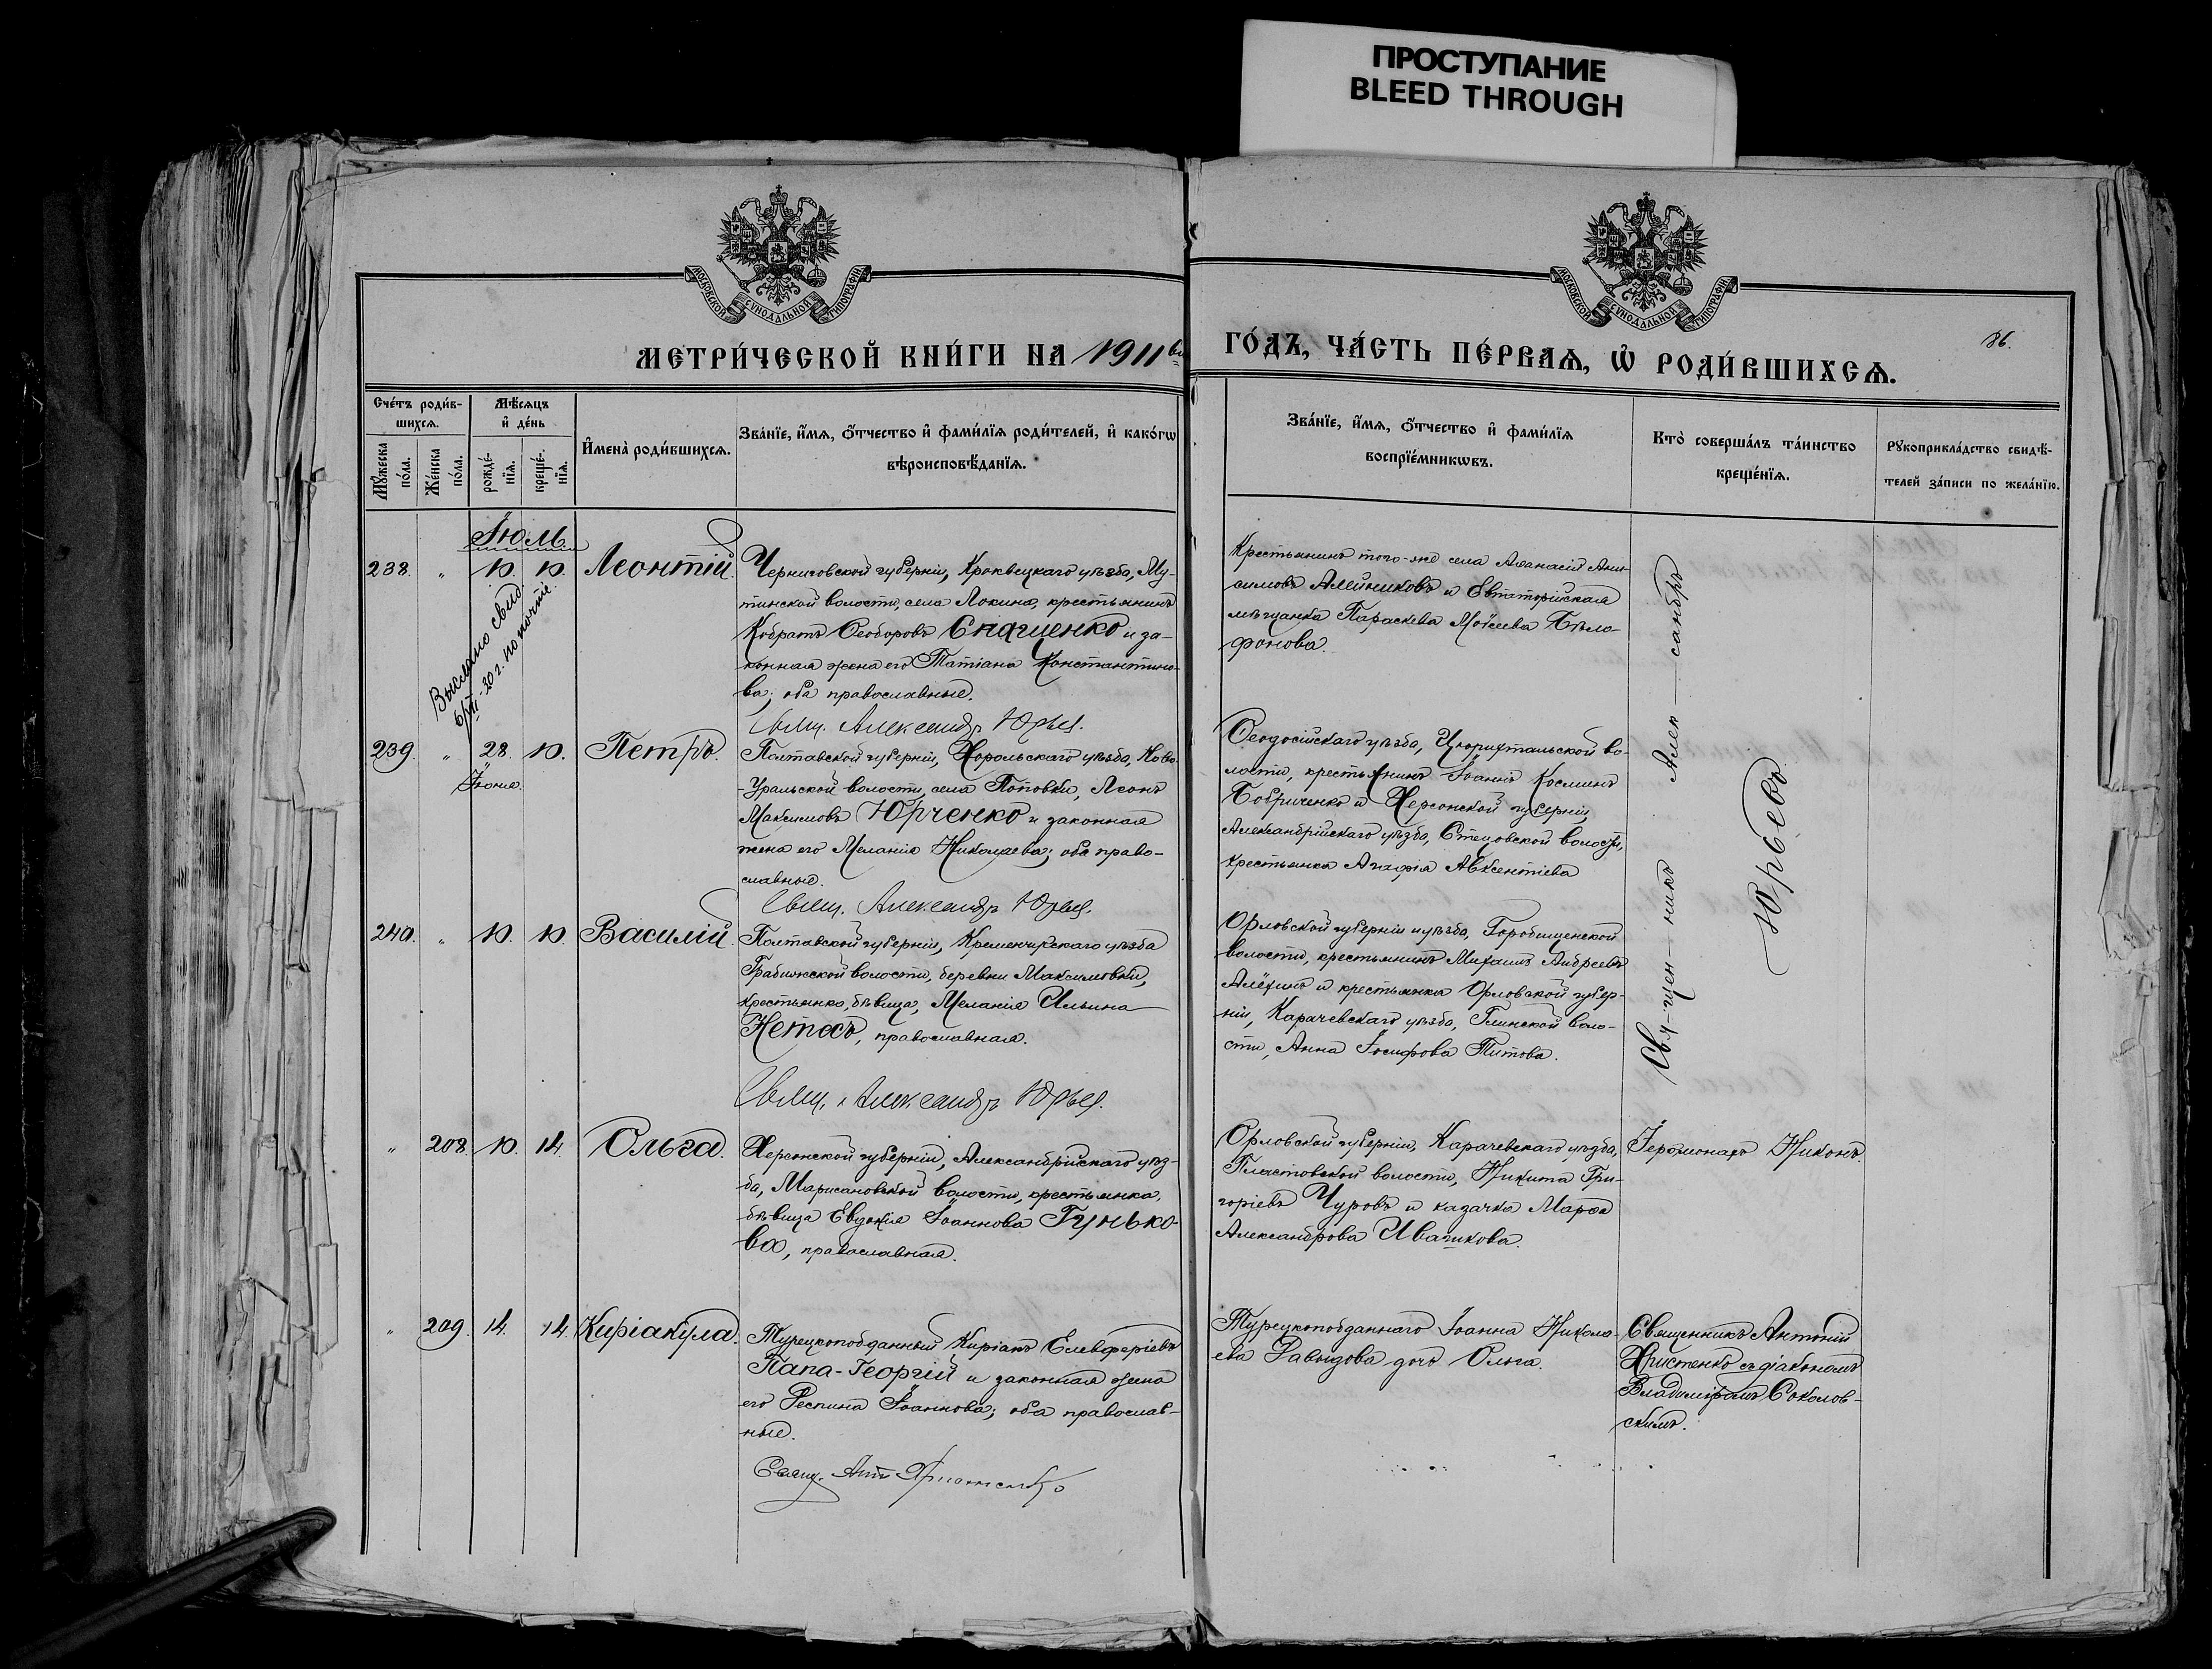 ПРОСТУПАНИЕ
BLEED THROUGH
МОСКОВСКОЙ СѴНОДАЛЬНОЙ ТИПОГРАФІИ
МОСКОВСКОЙ СѴНОДАЛЬНОЙ ТИПОГРАФІИ
МЕТРИ́ЧЕСКОЙ КНИ́ГИ НА 1911й
ГО́ДЪ, ЧА́СТЬ ПЕ́РВАѦ, Ѡ РОДИ́ВШИХСѦ.
186.
Сче́тъ роди́в-
шихсѧ.
Мꙋ́жеска по́ла.
Же́нска по́ла.
Мѣ́сѧцъ и де́нь
рожде́-нїѧ.
креще́-нїѧ.
Имена̀ роди́вшихсѧ.
Зва́нїе, и́мѧ, ѻ́тчество и фами́лїѧ роди́телей, и како́гѡ
вѣроисповѣ́данїѧ.
Зва́нїе, и́мѧ, ѻ́тчество и фами́лїѧ
воспрїе́мникѡвъ.
Кто̀ соверша́лъ та́инство
креще́нїѧ.
Рꙋкоприкла́дство свидѣ́-
телей за́писи по жела́нїю.
Іюль
238. " 10. 10. Леонтій.
Черниговской губерніи, Кролевецкаго уѣзда, Му-
тинской волости, села Локина, крестьянинъ
Кодратъ Ѳеодоровъ Спащенко и за-
конная жена его Татіана Константино-
ва; оба православные.
Свящ. Александръ Юрьев.
Выслано свид.
20 г. по почте.
Крестьянинъ того-же села Аѳанасій Ани-
симовъ Алейниковъ и Евпаторійская
мѣщанка Параскева Моѵсеева Бѣло-
фонова.
239. " 28. 10. Петръ.
Іюня.
Полтавской губерніи, Хорольскаго уѣзда, Ново-
-Уральской волости, села Поповки, Леонъ
Максимовъ Юрченко и законная
жена его Меланія Николаева; оба право-
славные.
Свящ. Александръ Юрьев.
Ѳеодосійскаго уѣзда, Цюрихтальской во-
лости, крестьянинъ Іоаннъ Косминъ
Бобриченко и Херсонской губерніи,
Александрійскаго уѣзда, Стецовской волости,
крестьянка Агафія Авксентіева
240. " 10. 10. Василій.
Полтавской губерніи, Кременчугскаго уѣзда
Градижской волости, деревни Максимовки,
крестьянка, дѣвица, Меланія Ильина
Нетесъ, православная.
Свящ. Александръ Юрьев.
Орловской губерніи и уѣзда, Городищенской
волости, крестьянинъ Михаилъ Андреевъ
Алёхинъ и крестьянка Орловской губер-
ніи, Карачевскаго уѣзда, Глинской воло-
сти, Анна Іосифова Титова.
Свя-щен-никъ Алек-сандръ
Юрьевъ
" 208. 10. 14. Ольга.
Херсонской губерніи, Александрійскаго уѣз-
да, Марисановской волости, крестьянка,
дѣвица Евдокія Іоаннова Гунько-
ва, православная.
Орловской губерніи, Карачевскаго уѣзда,
Пластовской волости, Никита Гри-
горіевъ Чуровъ и казачка Марѳа
Александрова Ивашкова.
Іеромонахъ Никонъ.
" 209. 14. 14. Киріакула.
Турецкоподданный Киріакъ Елевферіевъ
Папа-Георгій и законная жена
его Респина Іоаннова; оба православ-
ные.
Свящ. Ант Христенко
Турецкоподданнаго Іоанна Никола-
ева Равыдова дочь Ольга.
Священникъ Антоній
Христенко съ діакономъ
Владиміромъ Соколов-
скимъ.